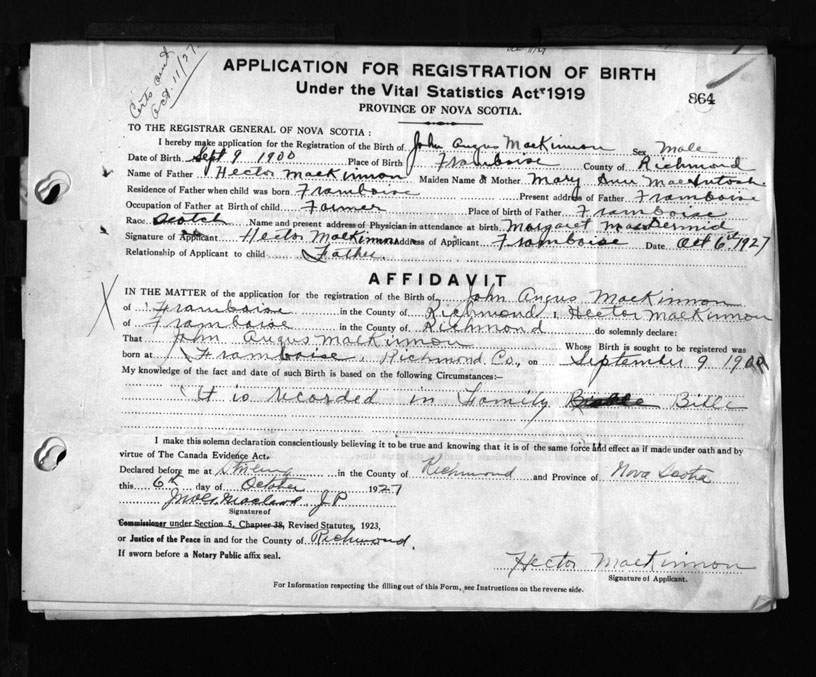 Oct. 11/27
APPLICATION FOR REGISTRATION OF BIRTH
Under the Vital Statistics Act 1919
PROVINCE OF NOVA SCOTIA.
864
TO THE REGISTRAR GENERAL OF NOVA SCOTIA:
I hereby make application for the Registration of the Birth of John Angus MacKinnon Sex Male
Date of Birth Sept 9 1900 Place of Birth Framboise County of Richmond
Name of Father Hector MacKinnon Maiden Name of Mother Mary Ann
Residence of Father when child was born Framboise Present address of Father Framboise
Occupation of Father at Birth of child Farmer Place of birth of Father Framboise
Race Scotch Name and present address of Physician in attendance at birth Margaret MacDermid
Signature of Applicant Hector MacKinnon Address of Applicant Framboise Date Oct 6th 1927
Relationship of Applicant to child Father
AFFIDAVIT
IN THE MATTER of the application for the registration of the Birth of John Angus MacKinnon
of Framboise in the County of Richmond, Hector MacKinnon
of Framboise in the County of Richmond do solemnly declare:
That John Angus MacKinnon Whose Birth is sought to be registered was
born at Framboise, Richmond Co., on September 9 1900
My knowledge of the fact and date of such Birth is based on the following Circumstances:—
It is recorded in Family Bible
I make this solemn declaration conscientiously believing it to be true and knowing that it is of the same force and effect as if made under oath and by
virtue of The Canada Evidence Act.
Declared before me at in the County of Richmond and Province of Nova Scotia
this 6th day of October 1927
Macleod J P
Signature of
Commissioner under Section 5, Chapter 38, Revised Statutes, 1923,
or Justice of the Peace in and for the County of Richmond.
If sworn before a Notary Public affix seal.
Hector MacKinnon
Signature of Applicant.
For Information respecting the filling out of this Form, see Instructions on the reverse side.